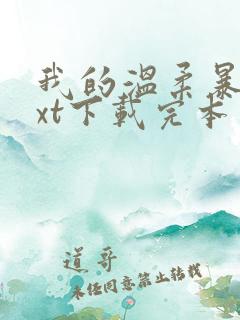 我的温柔暴
xt下载完本
道哥
未经同意禁止转载